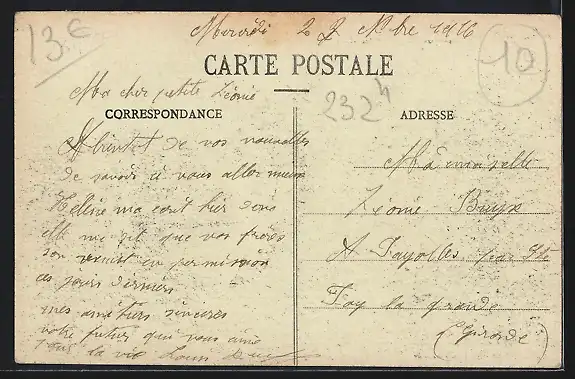 13 €
10
Mercredi 2 9bre 1916
CARTE POSTALE
232 4
Ma cher petite Léonie
CORRESPONDANCE
ADRESSE
A bientot de vos nouvelles
de savoir si vous aller mieux
Hélène ma ecrit hier soir
elle me dit que vos frères
son venut en permission
ces jours derniers
mes amitiers sincères
votre futur qui vous aime
tout la vie Louis
Mademoiselle
Léonie
A Fayolles par Ste
Foy la grande
(Gironde)